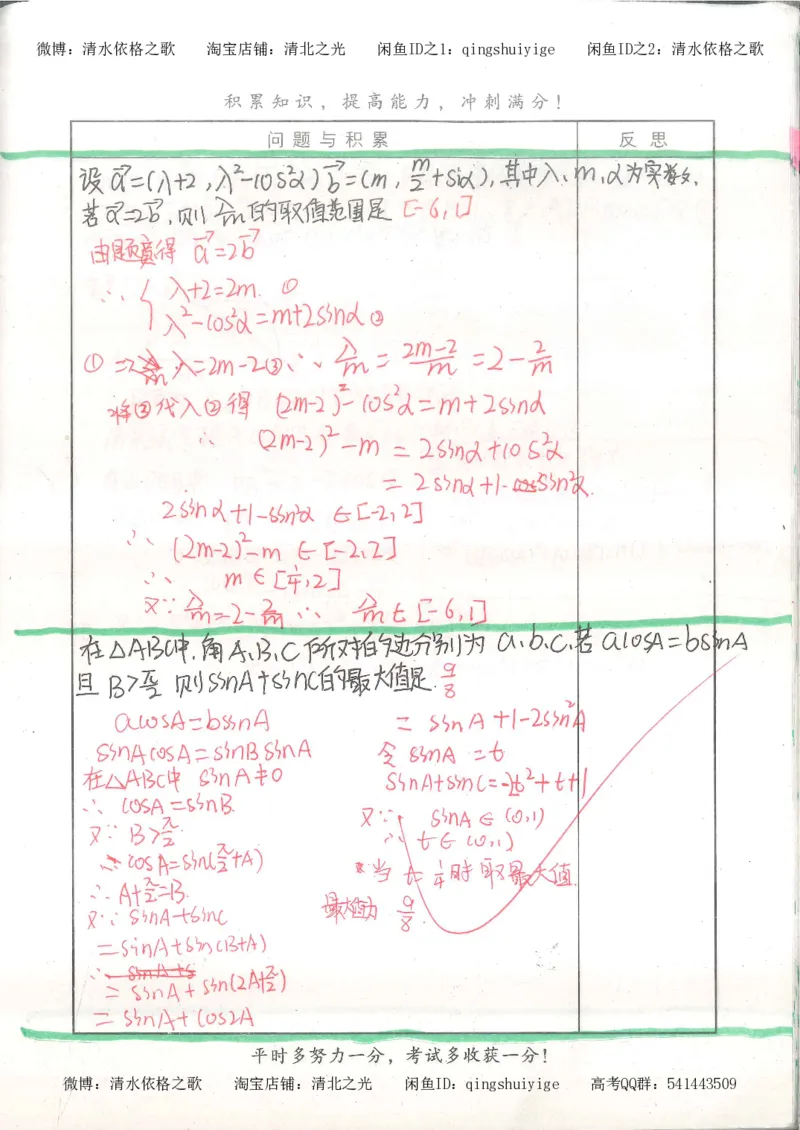 微博：清水依格之歌 淘宝店铺：清北之光 闲鱼ID之1：qingshuiyige 闲鱼ID之2：清水依格之歌
积累知识，提高能力，冲刺满分！
问题与积累 反思
设a⃗=(λ+2,λ²-cos²α) b⃗=(m, m/2+sinα),其中λ、m,α为实数,
若a⃗=2b⃗,则λ/m的取值范围是 [-6,1]
由题意得 a⃗=2b⃗
∴ { λ+2=2m. ①
λ²-cos²α=m+2sinα ②
① ⇒ λ=2m-2③ ∴ λ/m = (2m-2)/m = 2-2/m
将③代入②得 (2m-2)²-cos²α=m+2sinα
∴ (2m-2)²-m = 2sinα+cos²α
= 2sinα+1-sin²α.
2sinα+1-sin²α ∈[-2,2]
∴ (2m-2)²-m ∈ [-2,2]
∴ m∈[1/4,2]
又∵ λ/m=2-2/m ∴ λ/m ∈ [-6,1]
在△ABC中,角A,B,C所对的边分别为 a,b,c,若 acosA=bsinA
且 B>π/2 则sinA+sinC的最大值是 9/8
acosA=bsinA
sinAcosA=sinBsinA
在△ABC中 sinA≠0
∴ cosA=sinB.
又∵ B>π/2
∴cosA=sin(π/2+A)
∴A+π/2=B.
又∵ sinA+sinC
=sinA+sin(B+A)
∴ sinA+s
= sinA+sin(2A+π/2)
= sinA+cos2A
= sinA+1-2sin²A
令 sinA =t
sinA+sinC=-2t²+t+1
又∵ sinA∈(0,1)
∴ t∈(0,1)
当 t=1/4时取最大值.
最大值为 9/8.
平时多努力一分，考试多收获一分！
微博：清水依格之歌 淘宝店铺：清北之光 闲鱼ID：qingshuiyige 高考QQ群：541443509